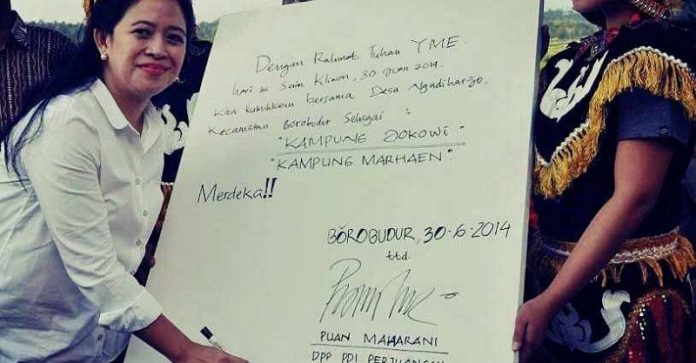 Dengan Rahmat Tuhan YME.
hari ini Senin Kliwon, 30 Juni 2014.
Kita kukuhkan bersama Desa Ngadiharjo,
Kecamatan Borobudur Sebagai :
"KAMPUNG JOKOWI"
"KAMPUNG MARHAEN"
Merdeka!!
BOROBUDUR, 30-6-2014
ttd
PUAN MAHARANI
DPP PDI PERJUANGAN